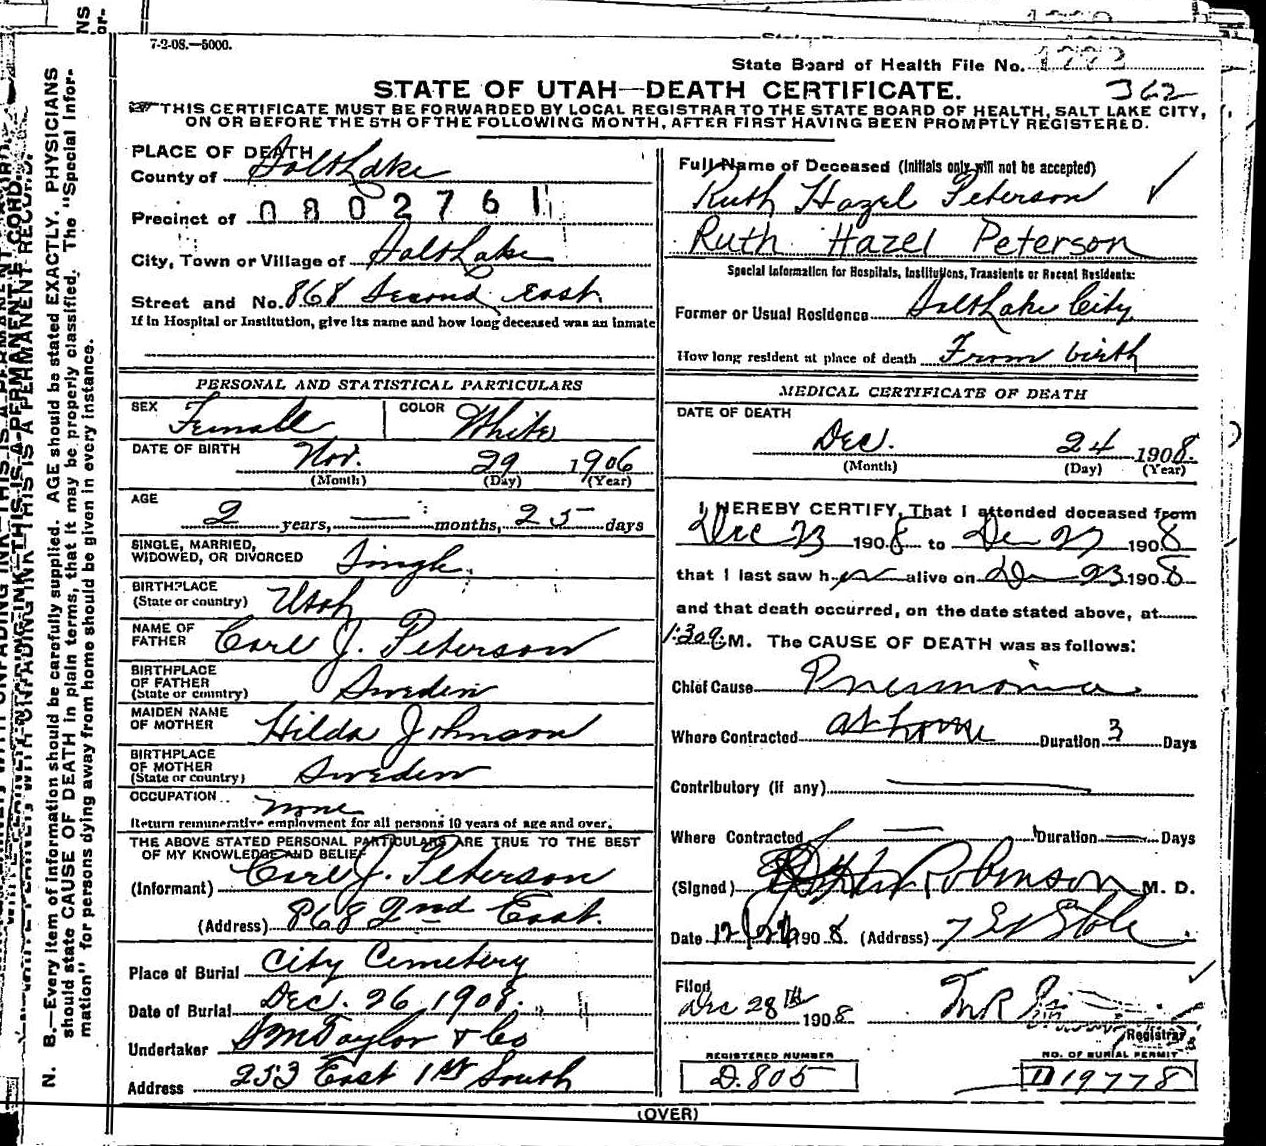 7-2-08.—5000.
State Board of Health File No. 1773
362
STATE OF UTAH—DEATH CERTIFICATE.
THIS CERTIFICATE MUST BE FORWARDED BY LOCAL REGISTRAR TO THE STATE BOARD OF HEALTH, SALT LAKE CITY,
ON OR BEFORE THE 5TH OF THE FOLLOWING MONTH, AFTER FIRST HAVING BEEN PROMPTLY REGISTERED.
PLACE OF DEATH
County of Salt Lake
Precinct of 0802761
City, Town or Village of Salt Lake
Street and No. 868 Second East.
If in Hospital or Institution, give its name and how long deceased was an inmate
Full Name of Deceased (Initials only will not be accepted)
Ruth Hazel Peterson
Ruth Hazel Peterson
Special Information for Hospitals, Institutions, Transients or Recent Residents:
Former or Usual Residence Salt Lake City
How long resident at place of death From birth
PERSONAL AND STATISTICAL PARTICULARS
SEX Female COLOR White
DATE OF BIRTH Nov. 29 1906
(Month) (Day) (Year)
AGE
2 years, — months, 25 days
SINGLE, MARRIED,
WIDOWED, OR DIVORCED Single.
BIRTHPLACE
(State or country) Utah
NAME OF
FATHER Carl J. Peterson
BIRTHPLACE
OF FATHER
(State or country) Sweden
MAIDEN NAME
OF MOTHER Hilda Johnson
BIRTHPLACE
OF MOTHER
(State or country) Sweden
OCCUPATION none
Return remunerative employment for all persons 10 years of age and over.
THE ABOVE STATED PERSONAL PARTICULARS ARE TRUE TO THE BEST
OF MY KNOWLEDGE AND BELIEF
(Informant) Carl J. Peterson
(Address) 868 2nd East.
Place of Burial City Cemetery
Date of Burial Dec. 26 1908.
Undertaker S M Taylor & Co
Address 253 East 1st South
MEDICAL CERTIFICATE OF DEATH
DATE OF DEATH
Dec. 24 1908.
(Month) (Day) (Year)
I HEREBY CERTIFY, That I attended deceased from
Dec 23 1908 to 1908
that I last saw her alive on 23 1908
and that death occurred, on the date stated above, at
1:30a.M. The CAUSE OF DEATH was as follows:
Chief Cause Pneumonia
Where Contracted at home Duration 3 Days
Contributory (if any)
Where Contracted — Duration — Days
(Signed) Robinson M. D.
Date 1908. (Address)
Filed
Dec 28th 1908
Registrar
REGISTERED NUMBER
D.805
NO. OF BURIAL PERMIT
D 19778
(OVER)
N. B.—Every item of information should be carefully supplied. AGE should be stated EXACTLY. PHYSICIANS
should state CAUSE OF DEATH in plain terms, that it may be properly classified. The "Special Infor-
mation" for persons dying away from home should be given in every instance.